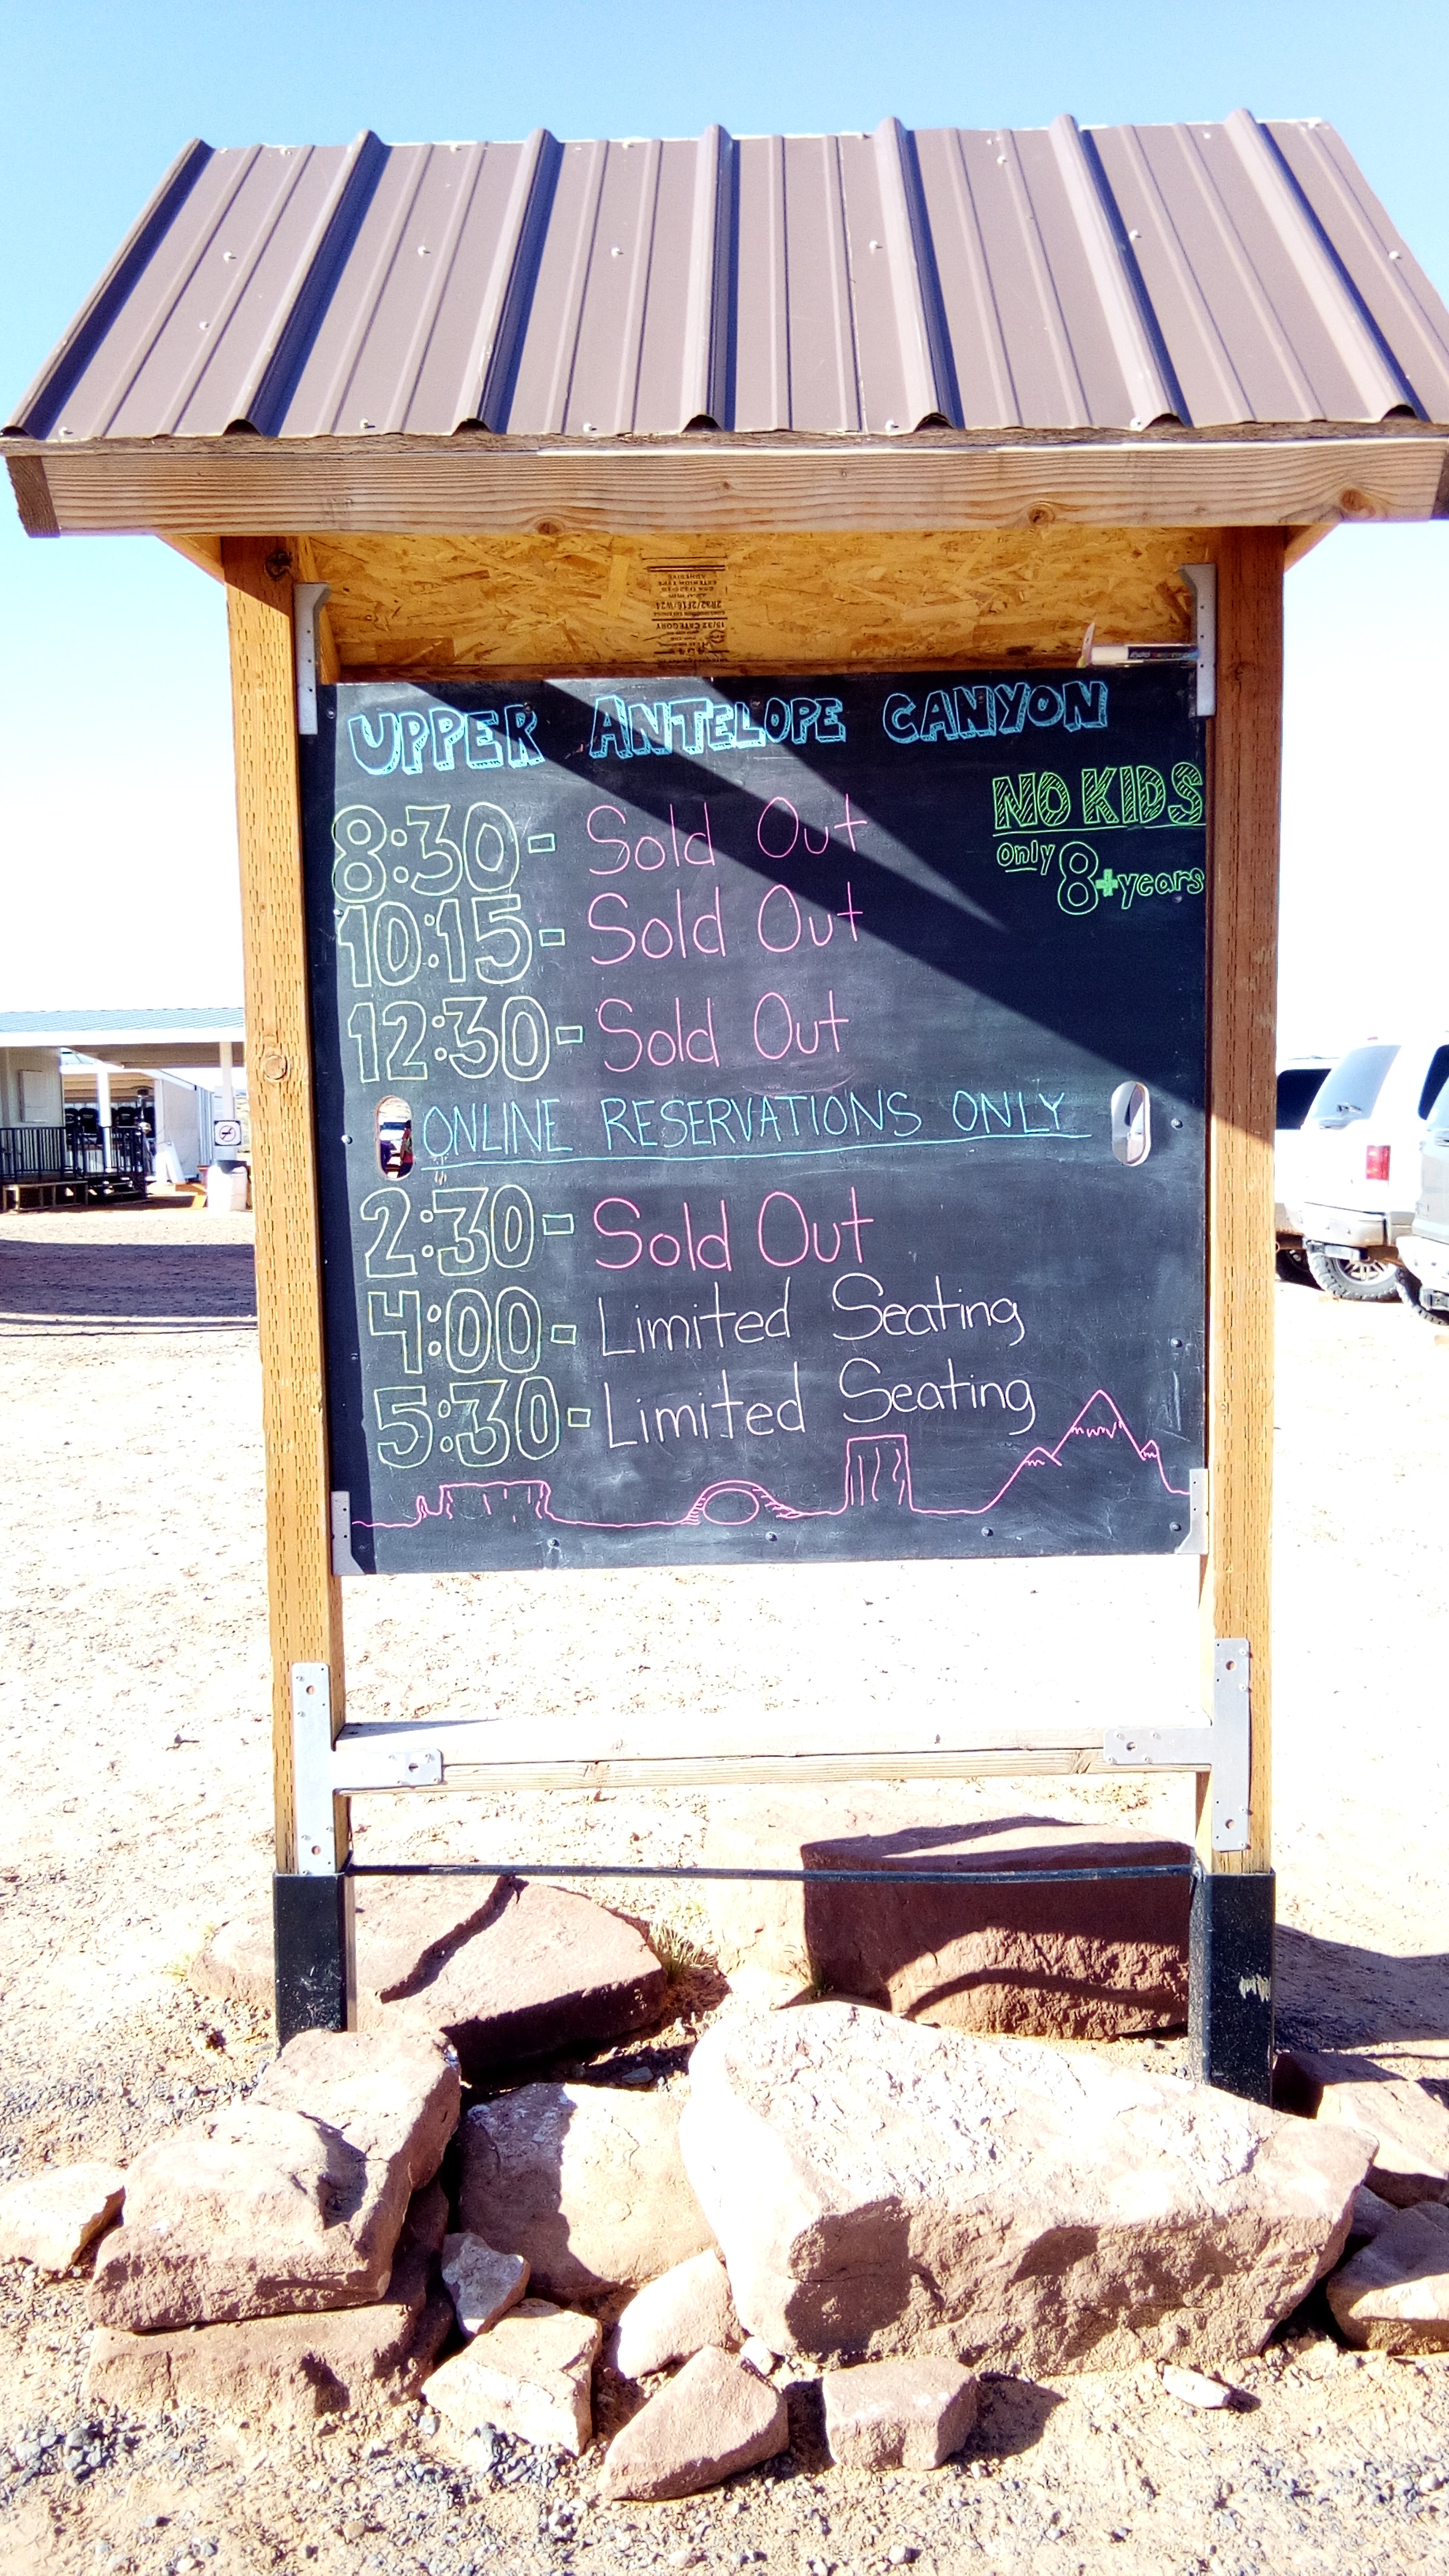 UPPER ANTELOPE CANYON
NO KIDS
only 8+years
8:30- Sold Out
10:15- Sold Out
12:30- Sold Out
ONLINE RESERVATIONS ONLY
2:30- Sold Out
4:00- Limited Seating
5:30- Limited Seating